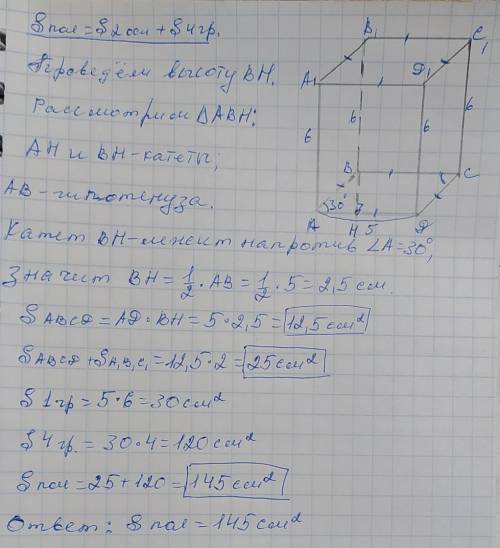 Sпол = S2осн + S4гр.
Проведём высоту BH.
Рассмотрим ΔABH:
AH и BH - катеты;
AB - гипотенуза.
Катет BH - лежит напротив ∠A = 30°,
Значит BH = 1/2 · AB = 1/2 · 5 = 2,5 см.
SABCD = AD · BH = 5 · 2,5 = 12,5 см²
SABCD + SA₁B₁C₁ = 12,5 · 2 = 25 см²
S1гр = 5 · 6 = 30 см²
S4гр. = 30 · 4 = 120 см²
Sпол = 25 + 120 = 145 см²
Ответ: Sпол = 145 см²
B₁ C₁
A₁ D₁
6 6 6 6
B C
30°
A H 5 D